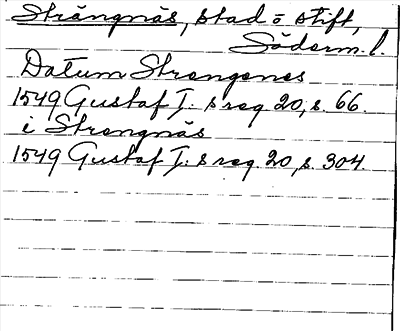 Strängnäs, stad o stift,
Söderm. l.
Datum Strengenes
1549 Gustaf I: s reg 20, s. 66.
i Strengnäs
1549 Gustaf I: s reg. 20, s. 304.